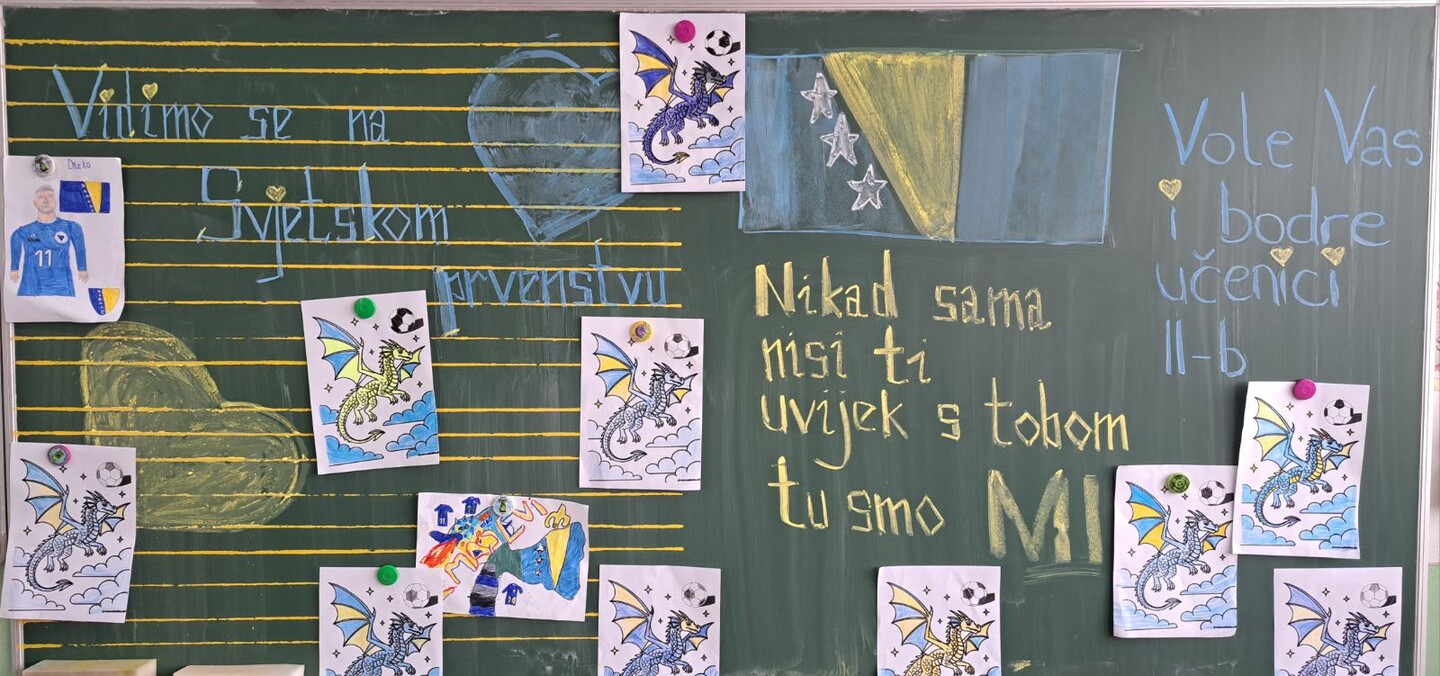 Vidimo se na
Svjetskom
prvenstvu
Džeko
11
Nikad sama
nisi ti
uvijek s tobom
tu smo MI
Vole Vas
i bodre
učenici
II-b